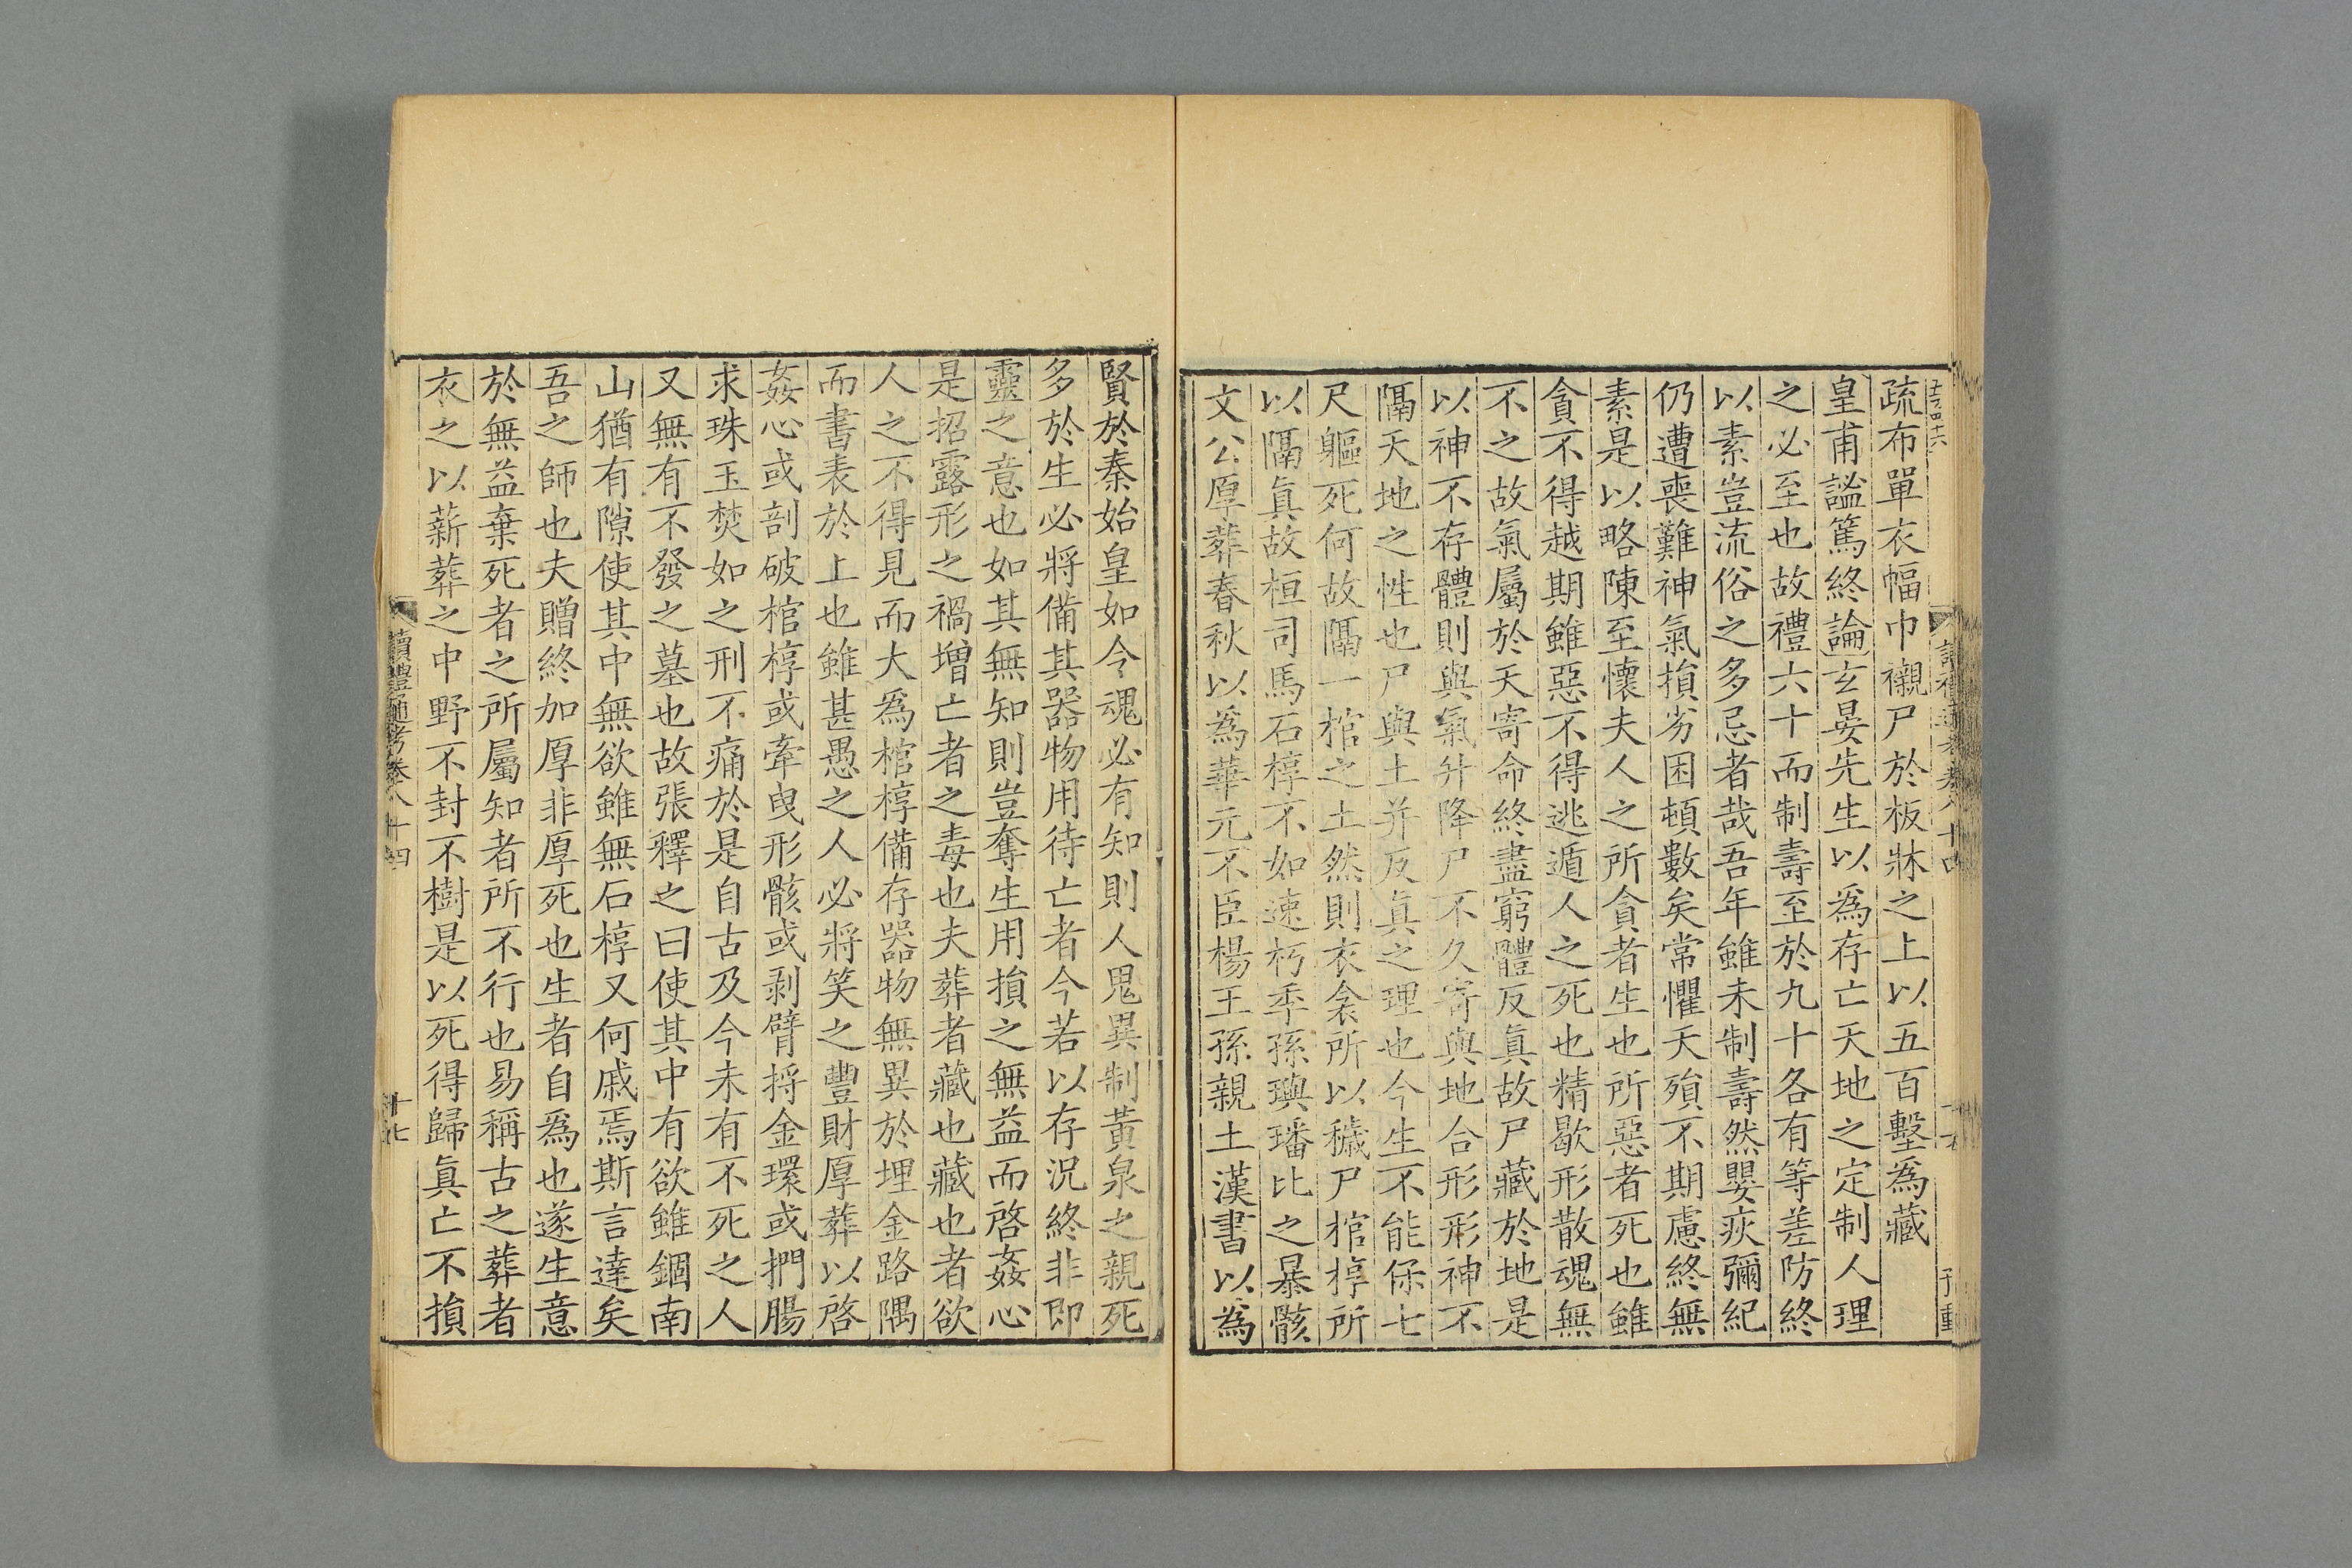 疏布單衣幅巾襯尸於板牀之上以五百墼爲藏
皇甫謐篤終論玄晏先生以爲存亡天地之定制人理
之必至也故禮六十而制壽至於九十各有等差防終
以素豈流俗之多忌者哉吾年雖未制壽然嬰疢彌紀
仍遭喪難神氣損劣困頓數矣常懼夭殞不期慮終無
素是以略陳至懷夫人之所貪者生也所惡者死也雖
貪不得越期雖惡不得逃遁人之死也精歇形散魂無
不之故氣屬於天寄命終盡窮體反眞故尸藏於地是
以神不存體則與氣升降尸不久寄與地合形形神不
隔天地之性也尸與土并反眞之理也今生不能保七
尺軀死何故隔一棺之土然則衣衾所以穢尸棺椁所
以隔眞故桓司馬石椁不如速朽季孫璵璠比之暴骸
文公厚葬春秋以為華元不臣楊王孫親土漢書以為
賢於秦始皇如今魂必有知則人鬼異制黃泉之親死
多於生必將備其器物用待亡者今若以存況終非即
靈之意也如其無知則豈奪生用損之無益而啓姦心
是招露形之禍增亡者之毒也夫葬者藏也藏也者欲
人之不得見而大爲棺椁備存器物無異於埋金路隅
而書表於上也雖甚愚之人必將笑之豐財厚葬以啓
姦心或剖破棺椁或牽曳形骸或剥臂捋金環或捫腸
求珠玉焚如之刑不痛於是自古及今未有不死之人
又無有不發之墓也故張釋之曰使其中有欲雖錮南
山猶有隙使其中無欲雖無石椁又何戚焉斯言達矣
吾之師也夫贈終加厚非厚死也生者自爲也遂生意
於無益棄死者之所屬知者所不行也易稱古之葬者
衣之以薪葬之中野不封不樹是以死得歸眞亡不損
讀禮通考卷八十四
十七